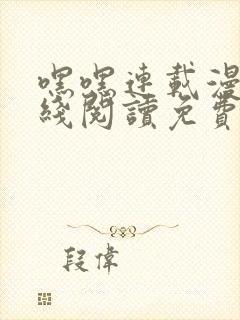 嘿嘿連載漫
綫閱讀免費
段偉